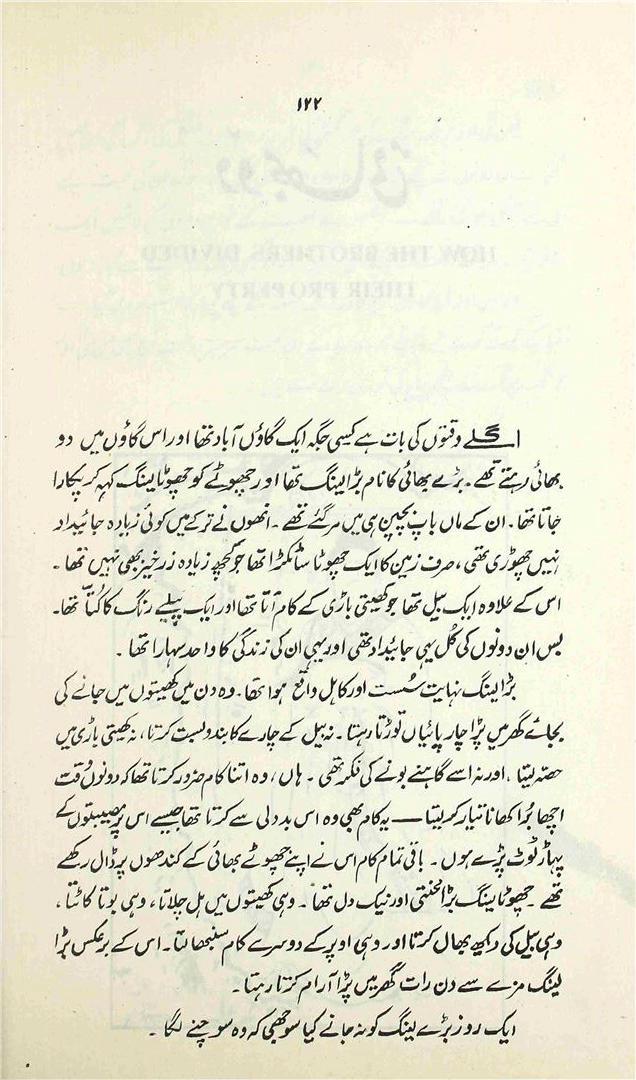 ۱۲۲
اگلے وقتوں کی بات ہے کسی جگہ ایک گاؤں آباد تھا اور اس گاؤں میں دو
بھائی رہتے تھے۔ بڑے بھائی کا نام بڑا لینگ تھا اور چھوٹے کو چھوٹا لینگ کہہ کر پکارا
جاتا تھا۔ ان کے ماں باپ بچپن ہی میں مر گئے تھے۔ انھوں نے ترکے میں کوئی زیادہ جائیداد
نہیں چھوڑی تھی، صرف زمین کا ایک چھوٹا سا ٹکڑا تھا جو کچھ زیادہ زرخیز بھی نہیں تھا۔
اس کے علاوہ ایک بیل تھا جو کھیتی باڑی کے کام آتا تھا اور ایک پیلے رنگ کا کُتّا تھا۔
بس ان دونوں کی کُل یہی جائیداد تھی اور یہی ان کی زندگی کا واحد سہارا تھا۔
بڑا لینگ نہایت سُست اور کاہل واقع ہوا تھا۔ وہ دن میں کھیتوں میں جانے کی
بجائے گھر میں پڑا چارپائیاں توڑتا رہتا۔ نہ بیل کے چارے کا بندوبست کرتا، نہ کھیتی باڑی میں
حصّہ لیتا، اور نہ اسے گاہنے بونے کی فکر تھی۔ ہاں، وہ اتنا کام ضرور کرتا تھا کہ دونوں وقت
اچھا بُرا کھانا تیار کر لیتا — یہ کام بھی وہ اس بددلی سے کرتا تھا جیسے اس پر مصیبتوں کے
پہاڑ ٹوٹ پڑے ہوں۔ باقی تمام کام اس نے اپنے چھوٹے بھائی کے کندھوں پر ڈال رکھے
تھے۔ چھوٹا لینگ بڑا محنتی اور نیک دل تھا۔ وہی کھیتوں میں ہل چلاتا، وہی بوتا کاٹتا،
وہی بیل کی دیکھ بھال کرتا اور وہی اوپر کے دوسرے کام سنبھالتا۔ اس کے برعکس بڑا
لینگ مزے سے دن رات گھر میں پڑا آرام کرتا رہتا۔
ایک روز بڑے لینگ کو نہ جانے کیا سوجھی کہ وہ سوچنے لگا۔